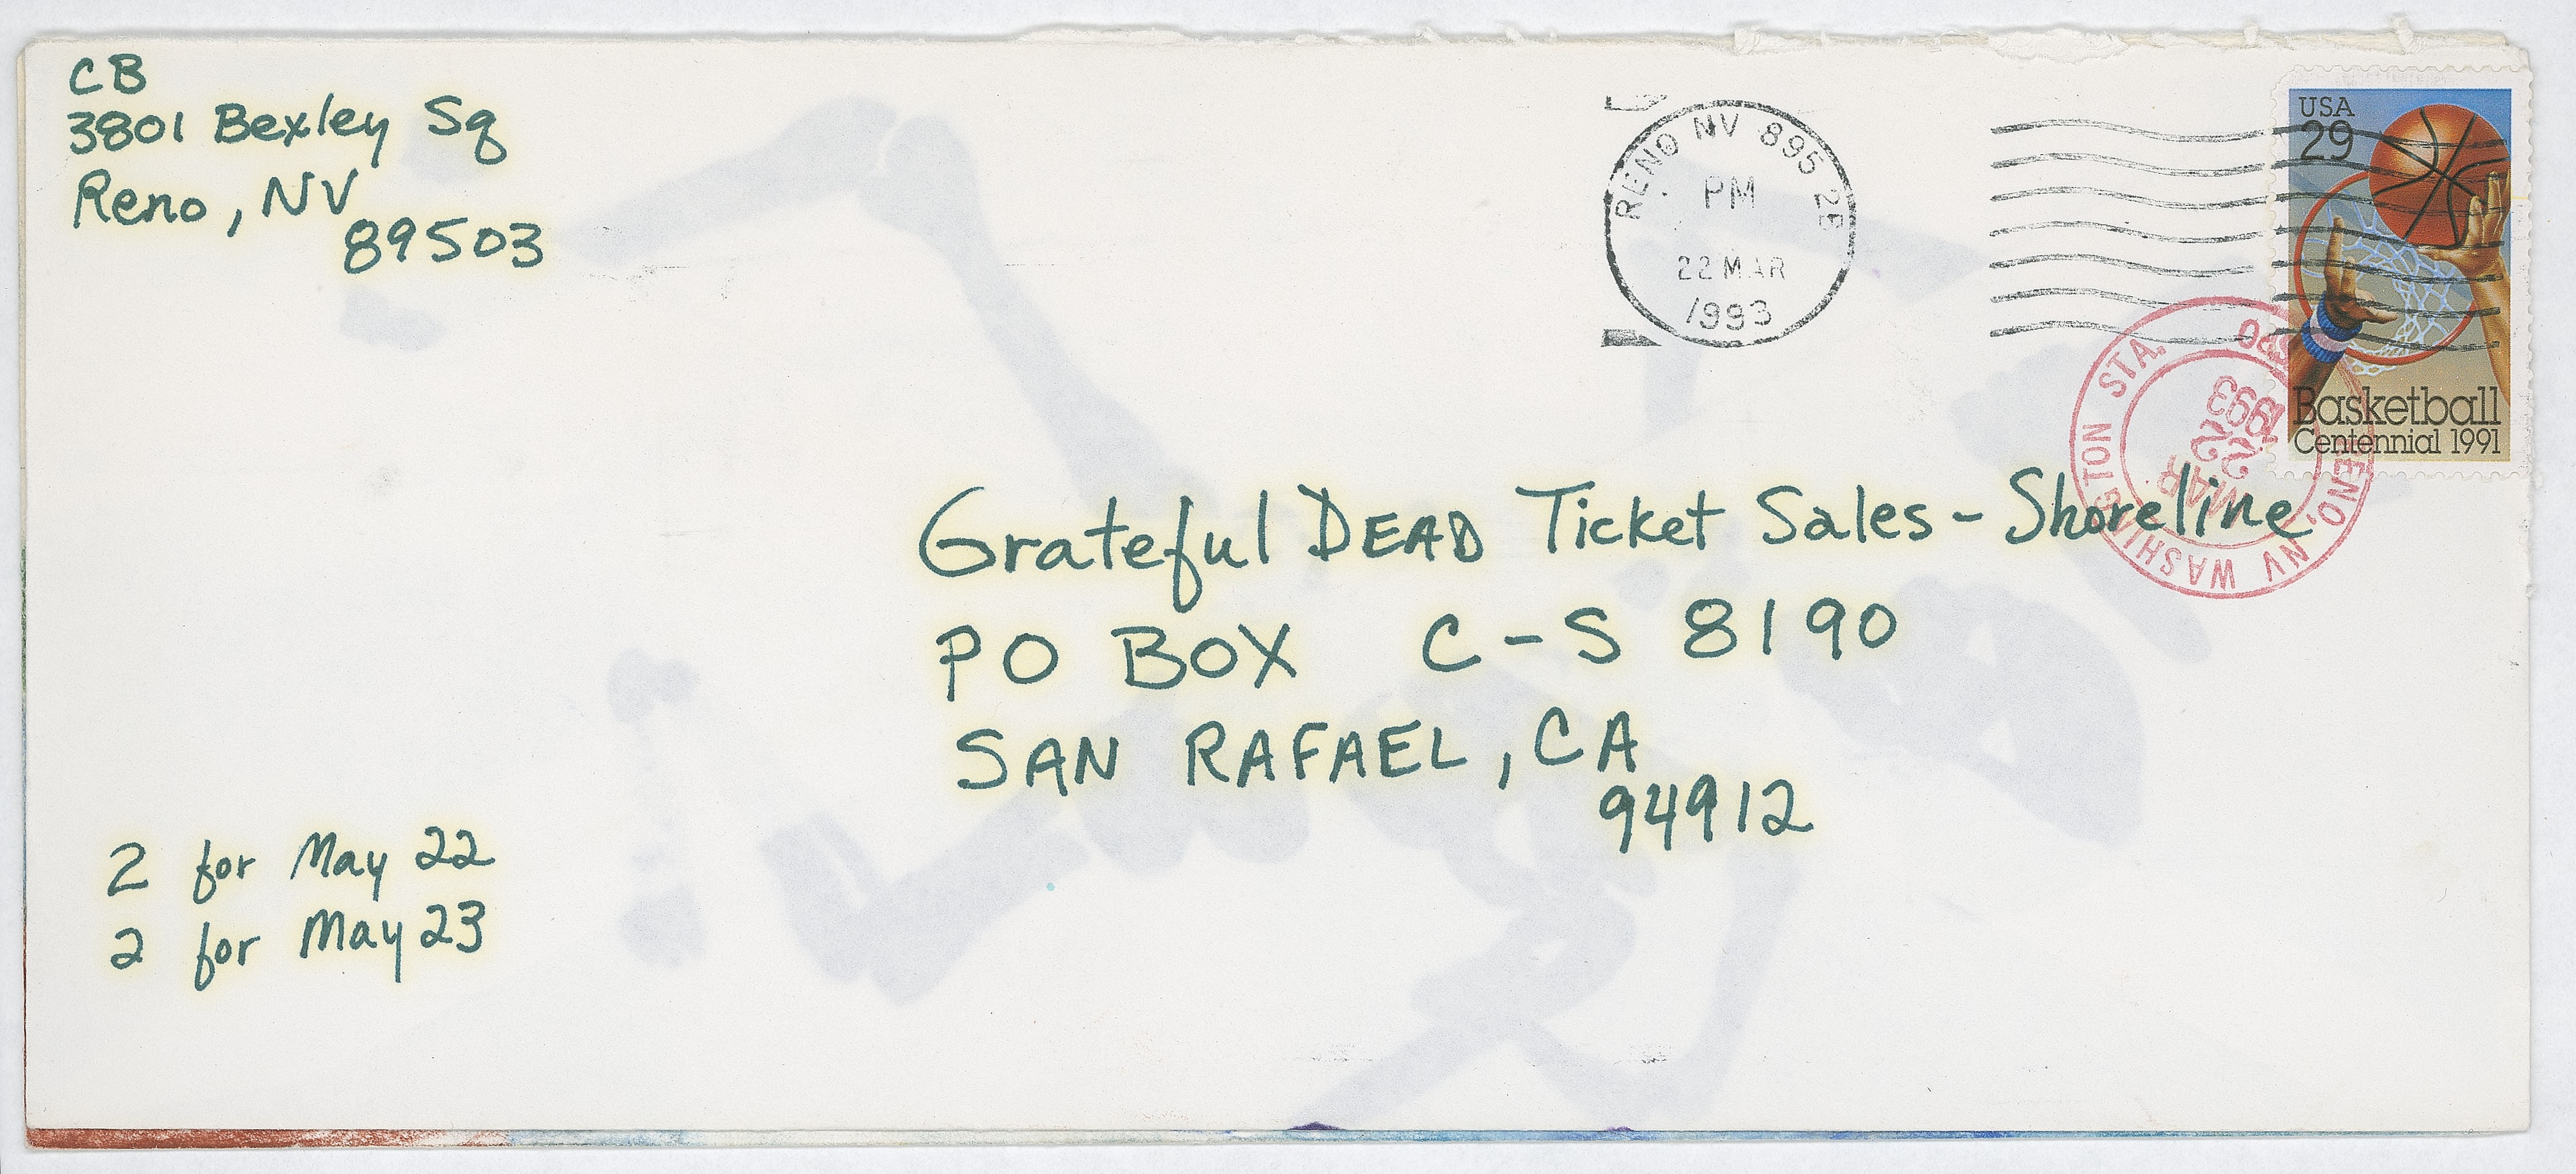 CB
3801 Bexley Sq
Reno, NV
89503
RENO NV 895 2E
PM
22 MAR
1993
USA
29
Basketball
Centennial 1991
RENO, NV WASHINGTON STA.
MAR
22
1993
Grateful DEAD Ticket Sales - Shoreline
PO BOX C-S 8190
SAN RAFAEL, CA
94912
2 for May 22
2 for May 23